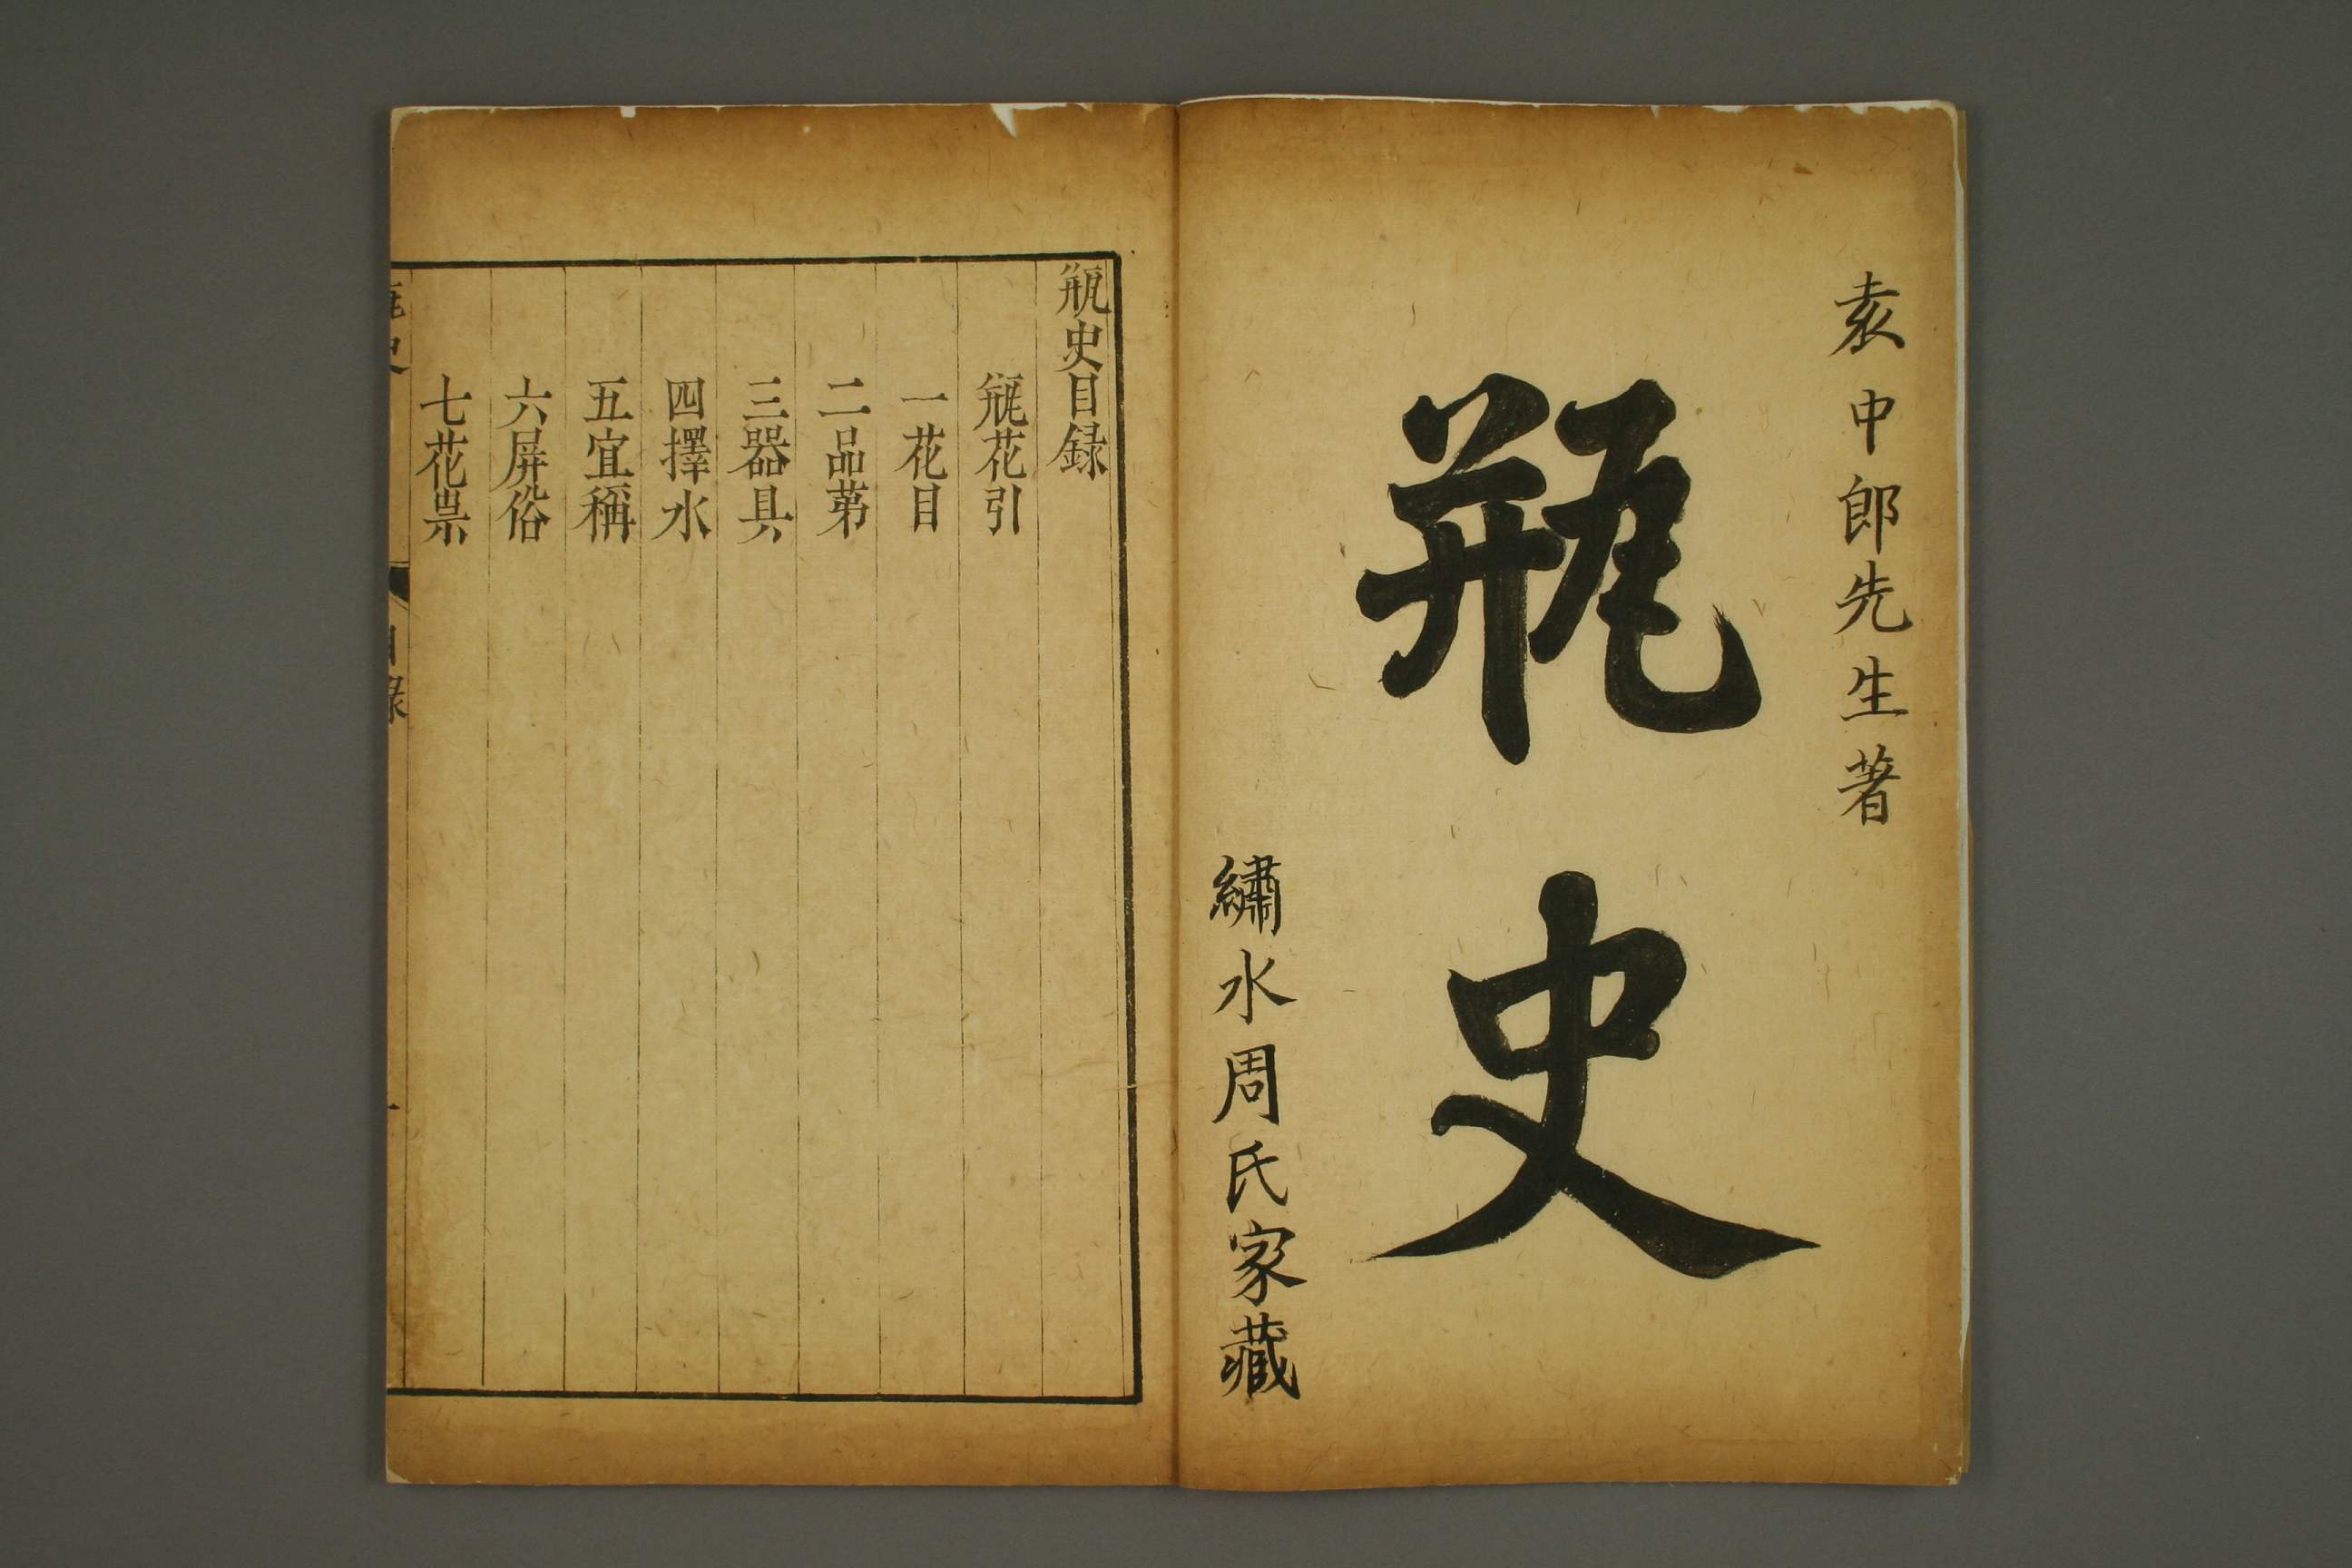 袁中郎先生著
瓶史
繡水周氏家藏
瓶史目録
瓶花引
一花目
二品第
三器具
四擇水
五宜稱
六屏俗
七花祟
目錄